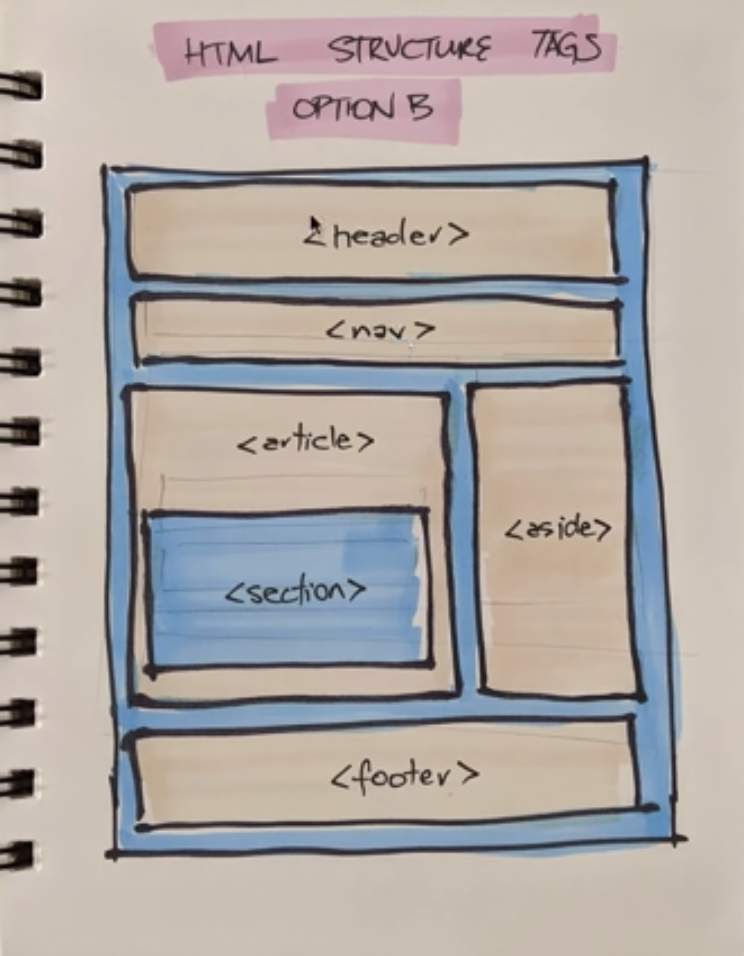 HTML STRUCTURE TAGS
OPTION B
<header>
<nav>
<article>
<section>
<aside>
<footer>